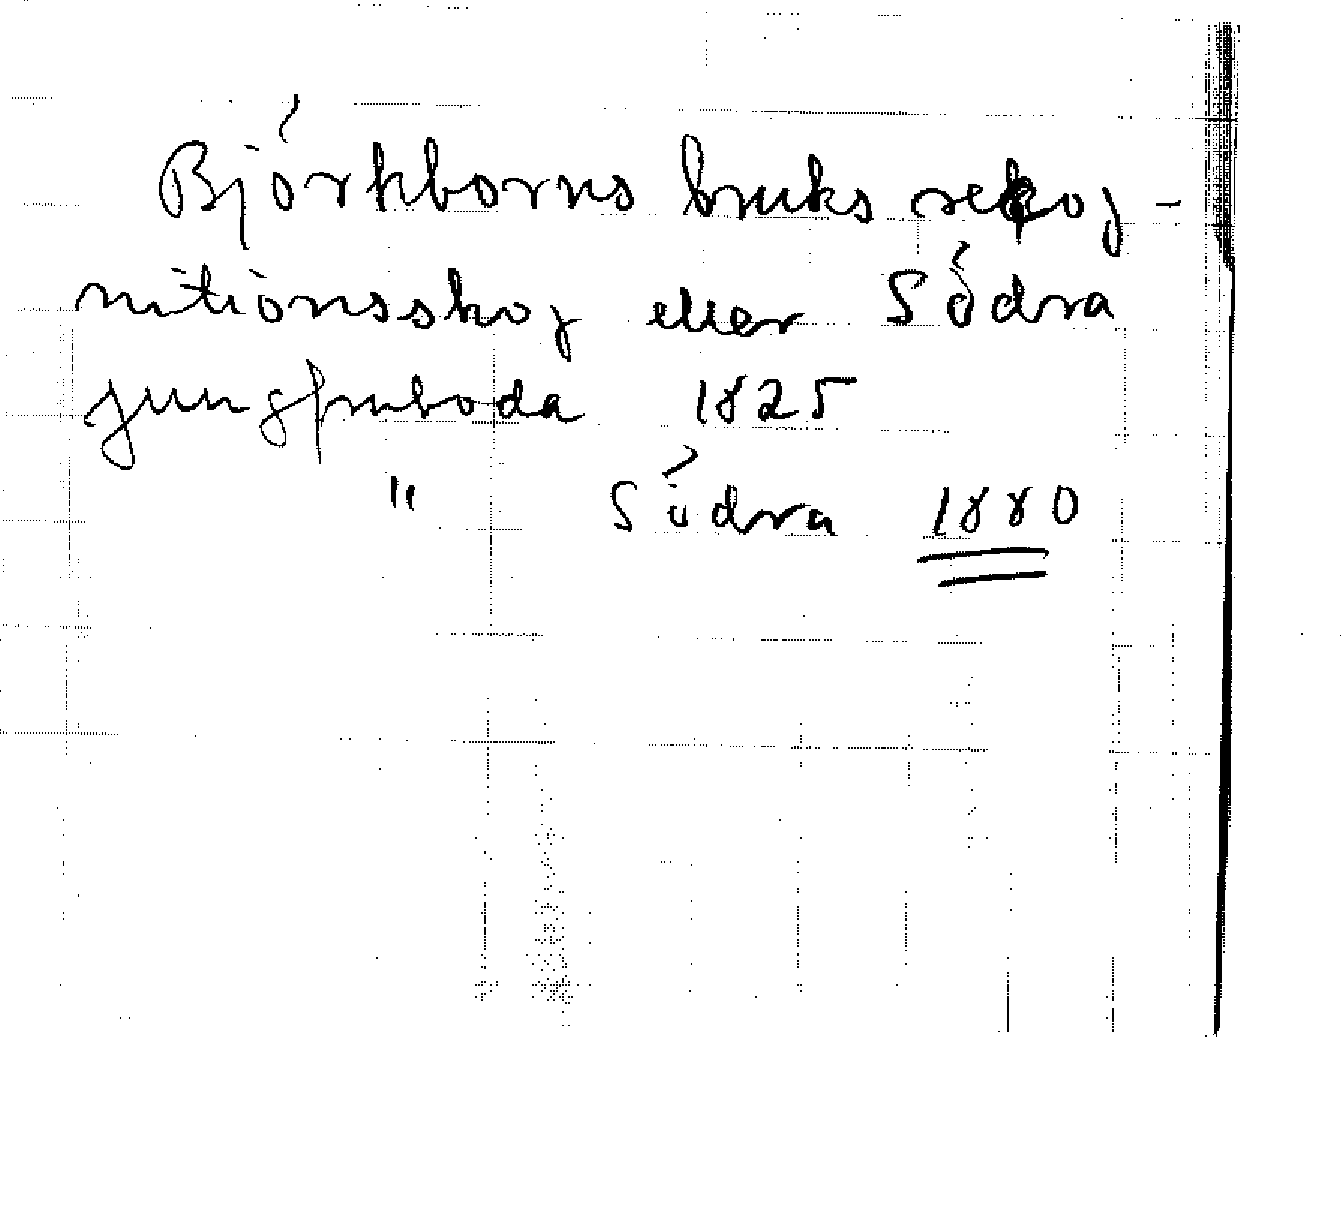 Björkborns bruks rekog-
nitionsskog eller Södra
jungfruboda 1825
" Södra 1880